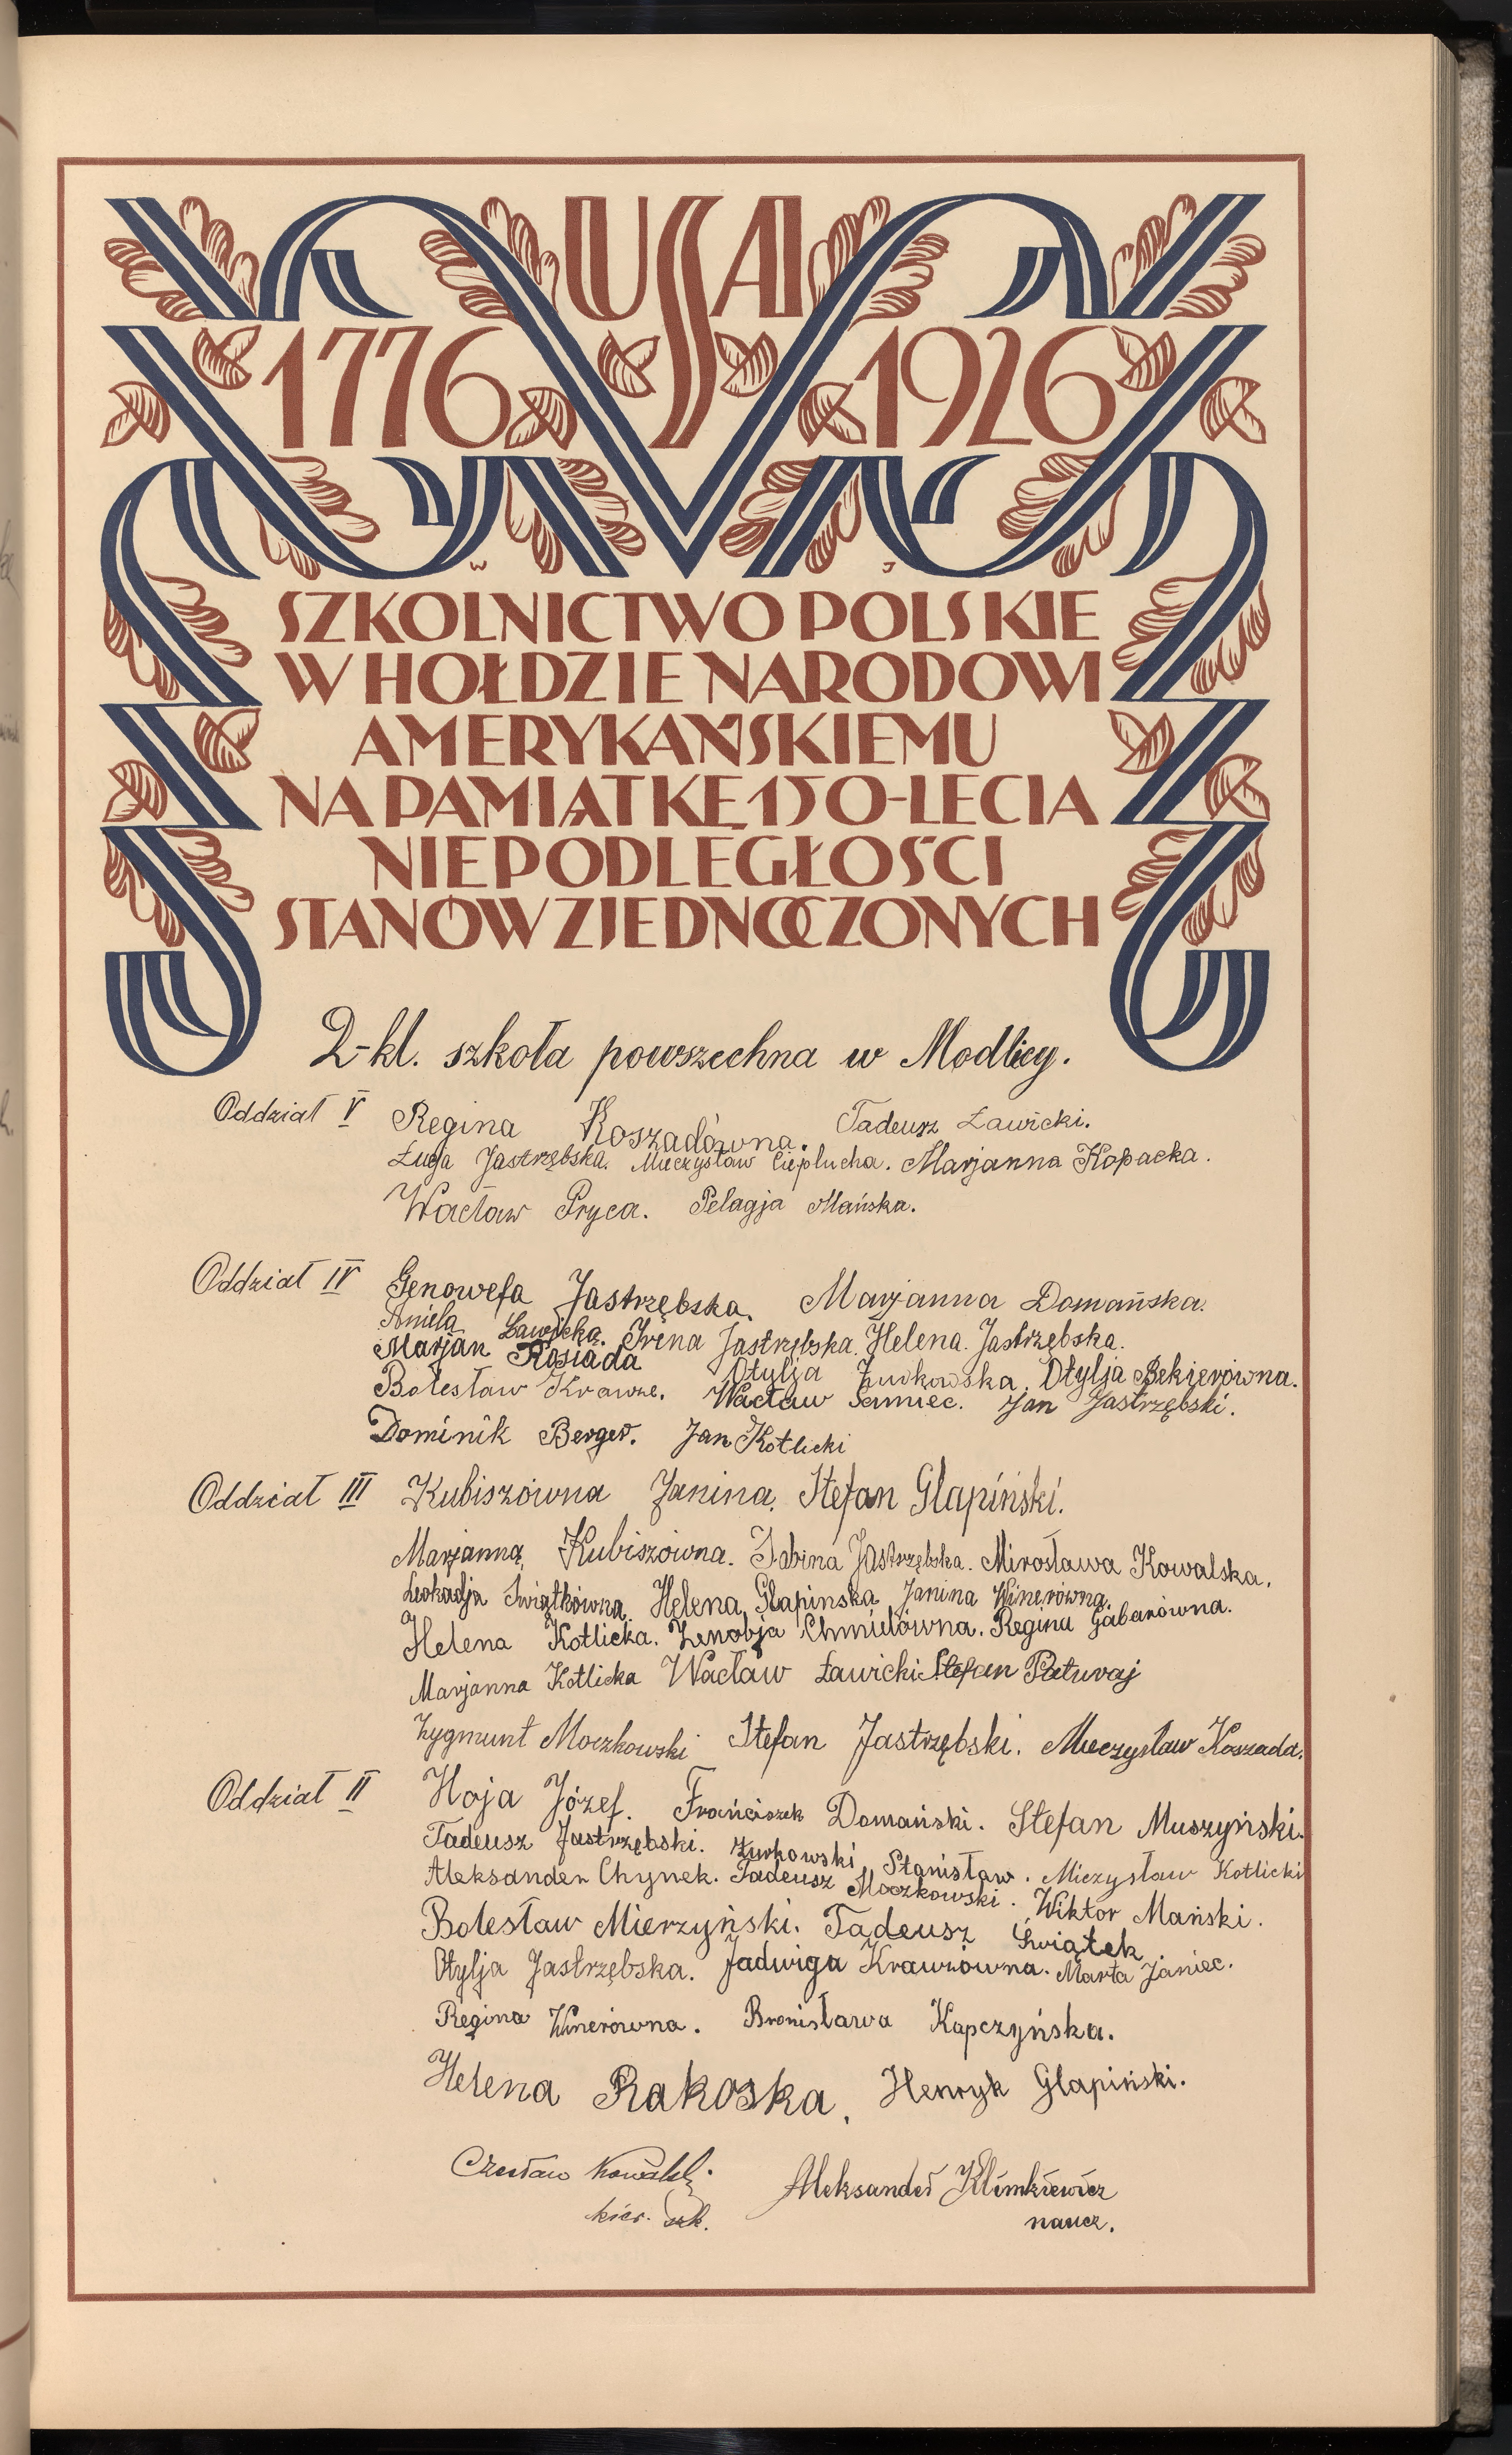 USA
1776 1926
W J
SZKOLNICTWO POLSKIE
W HOŁDZIE NARODOWI
AMERYKAŃSKIEMU
NA PAMIĄTKĘ 150-LECIA
NIEPODLEGŁOŚCI
STANÓW ZJEDNOCZONYCH
2-kl. szkoła powszechna w Modlicy.
Oddział V Regina Koszadówna. Tadeusz Ławicki.
Łucja Jastrzębska. Mieczysław Cieplucha. Marjanna Kopacka.
Wacław Pryca. Pelagja Mańska.
Oddział IV Genowefa Jastrzębska. Marjanna Domańska.
Aniela Ławicka. Irena Jastrzębska. Helena Jastrzębska.
Marjan Rosiada Otylja Żurkowska. Otylja Bekierówna.
Bolesław Krawze. Wacław Janiec. Jan Jastrzębski.
Dominik Berger. Jan Kotlicki
Oddział III Kubiszówna Janina. Stefan Glapiński.
Marjanna Kubiszówna. Sabina Jastrzębska. Mirosława Kowalska.
Leokadja Świątkówna. Helena Glapinska Janina Winerówna.
Helena Kotlicka. Zenobja Chmielówna. Regina Gabarówna.
Marjanna Kotlicka Wacław Ławicki Stefan Paturaj
Zygmunt Moczkowski Stefan Jastrzębski. Mieczysław Koszada.
Oddział II Hoja Józef. Franciszek Domański. Stefan Muszyński.
Tadeusz Jastrzębski. Żurkowski Stanisław. Mieczysław Kotlicki
Aleksander Chynek. Tadeusz Moczkowski. Wiktor Mański.
Bolesław Mierzyński. Tadeusz Świątek
Otylja Jastrzębska. Jadwiga Krawzówna. Marta Janiec.
Regina Winerówna. Bronisława Kapczyńska.
Helena Rakoska, Henryk Glapiński.
Czesław Kowalski Aleksander Klimkiewicz
kier. szk. naucz.